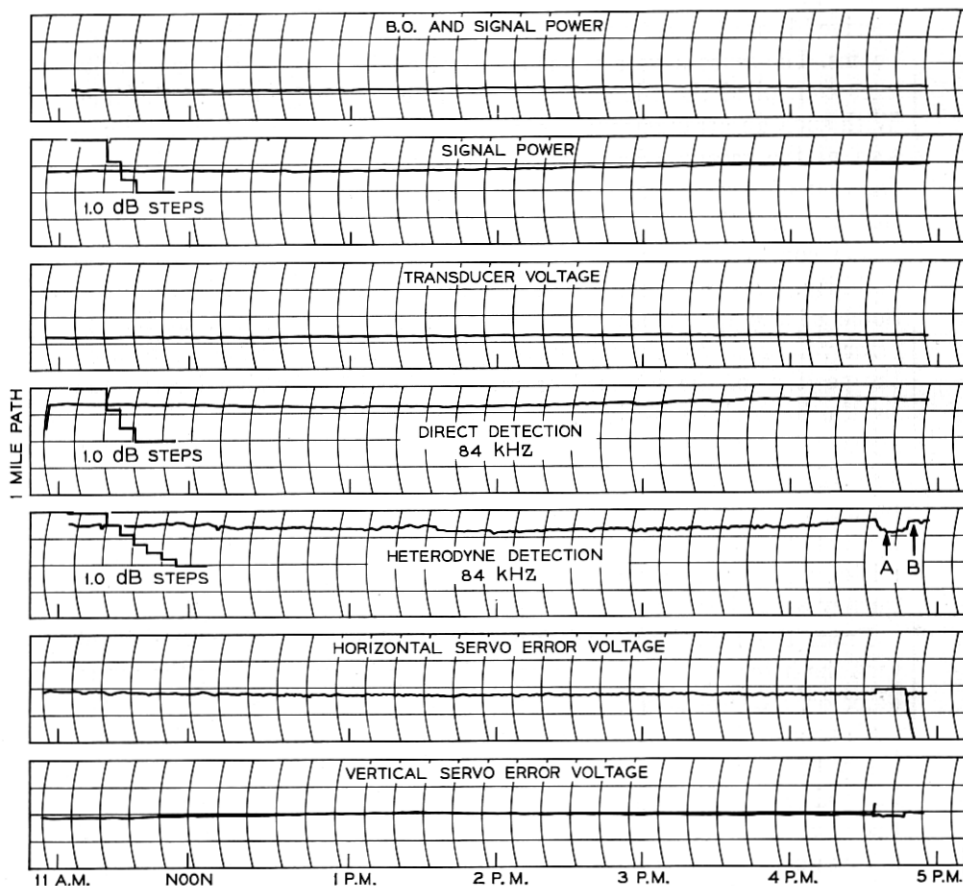 B.O. AND SIGNAL POWER
SIGNAL POWER
1.0 dB STEPS
TRANSDUCER VOLTAGE
1 MILE PATH
DIRECT DETECTION
84 kHz
1.0 dB STEPS
HETERODYNE DETECTION
84 kHz
1.0 dB STEPS
A B
HORIZONTAL SERVO ERROR VOLTAGE
VERTICAL SERVO ERROR VOLTAGE
11 A.M. NOON 1 P.M. 2 P.M. 3 P.M. 4 P.M. 5 P.M.